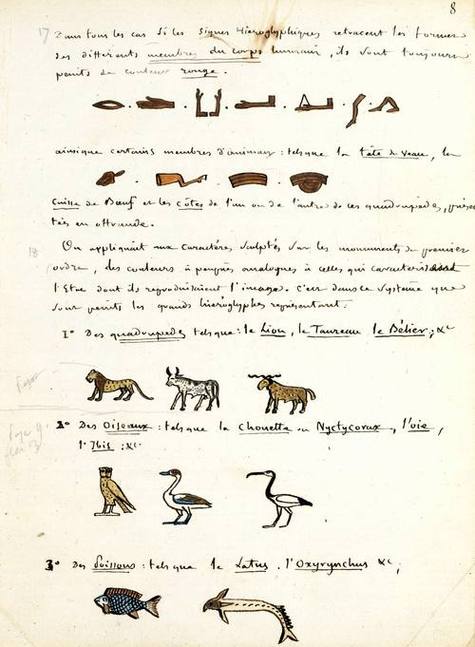 8
17 Dans tous les cas si les signes hiéroglyphiques retracent les formes
des différents membres du corps humain, ils sont toujours
peints de couleur rouge.
ainsique certains membres d'animaux : telsque la tête de veau, la
cuisse de Bœuf et les côtes de l'un ou de l'autre de ces quadrupèdes, présen
tés en offrande.
18 On appliquait aux caractères sculptés sur les monuments du premier
ordre, des couleurs à peuprès analogues à celles qui caractérisaient
l'Etre dont ils reproduisaient l'image. c'est dansce système que
sont peints les grands hiéroglyphes représentant.
1° Des quadrupèdes telsque : le Lion, le Taureau le Bélier ; &c
2° Des Oiseaux : telsque la Chouette ou Nyctycorax, l'oie,
l'Ibis ; &c.
3° Des Poissons : telsque le Latus. l'Oxyrynchus &c ;